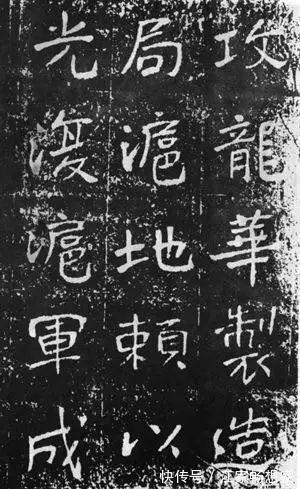 攻龍華製造
局滬地頼以
光復滬軍成
快传号